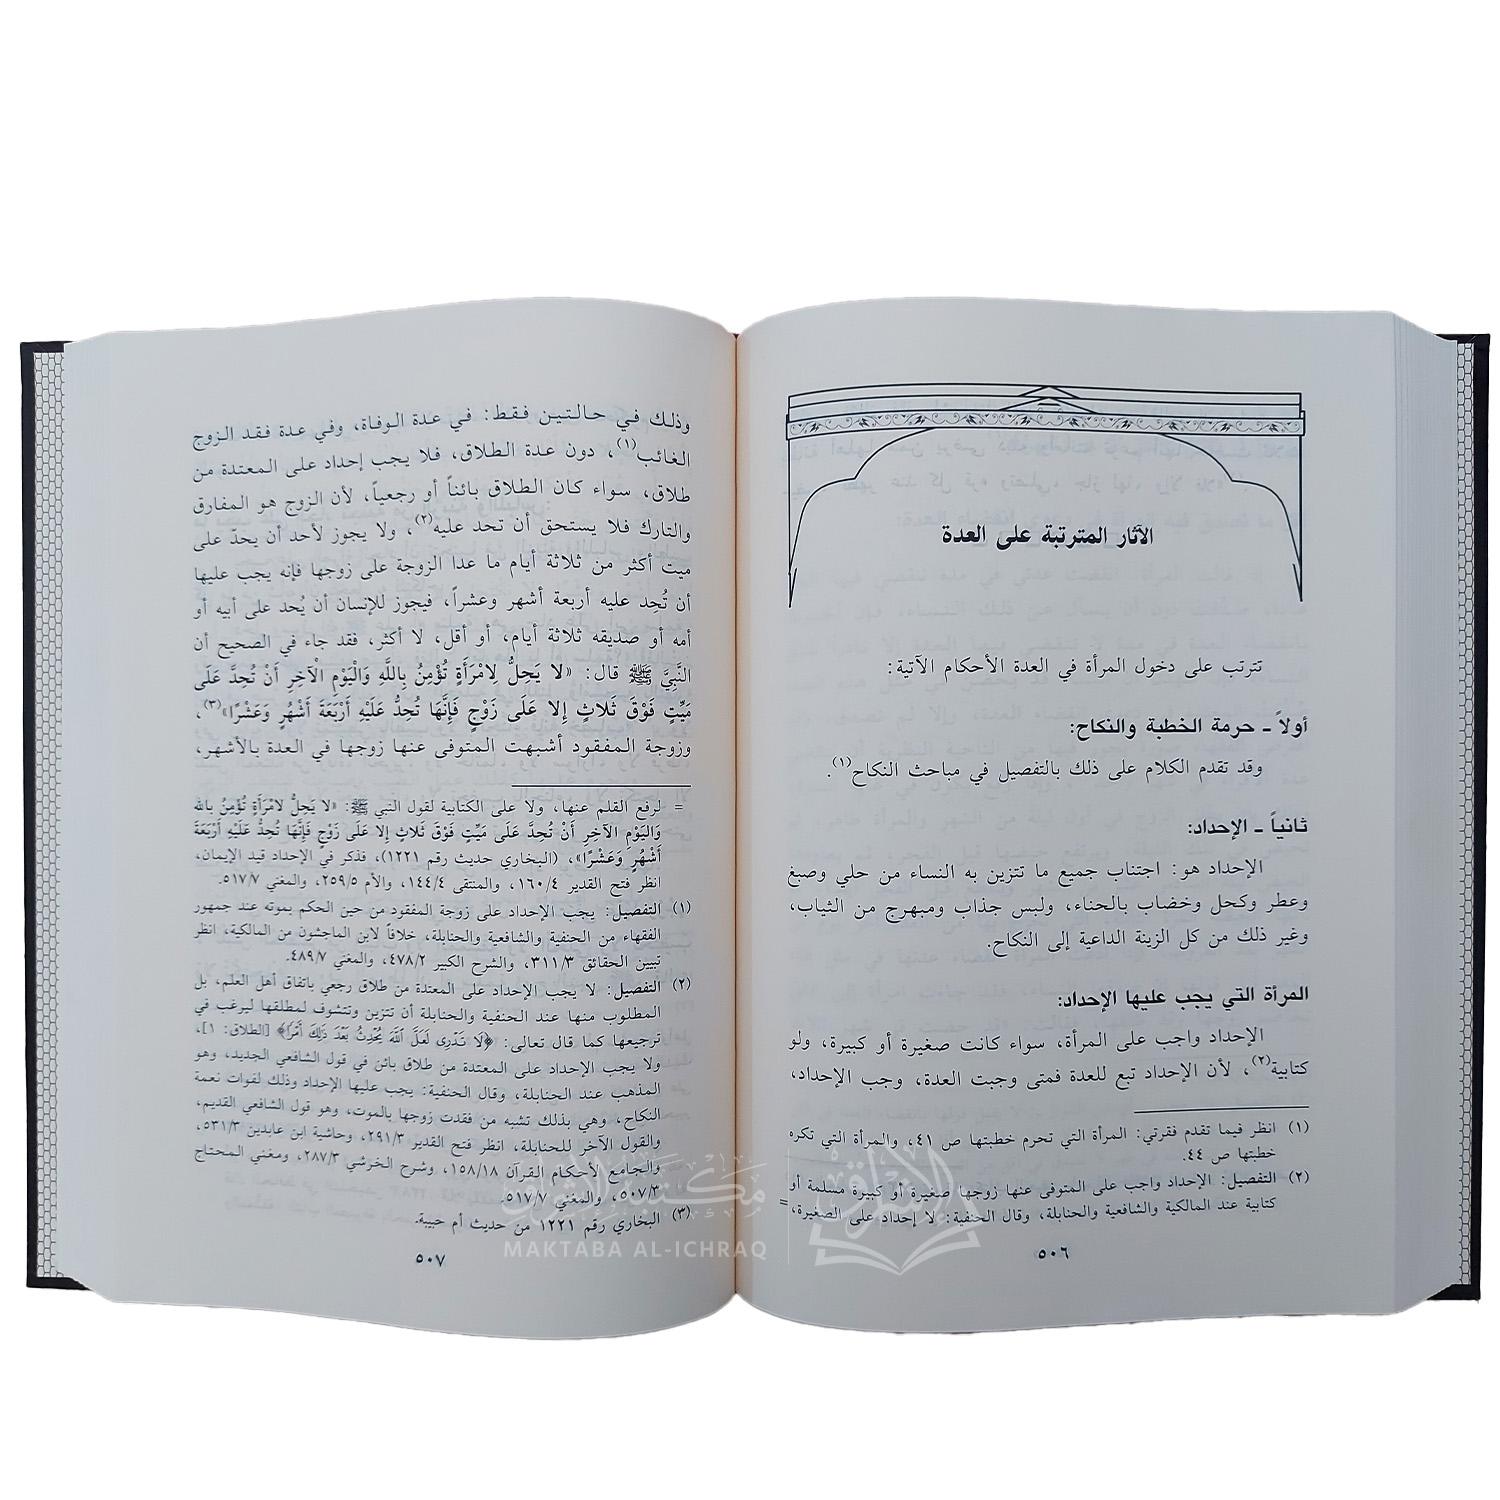 الآثار المترتبة على العدة
تترتب على دخول المرأة في العدة الأحكام الآتية:
أولاً ـ حرمة الخطبة والنكاح:
وقد تقدم الكلام على ذلك بالتفصيل في مباحث النكاح(١).
ثانياً ـ الإحداد:
الإحداد هو: اجتناب جميع ما تتزين به النساء من حلي وصبغ
وعطر وكحل وخضاب بالحناء، ولبس جذاب ومبهرج من الثياب،
وغير ذلك من كل الزينة الداعية إلى النكاح.
المرأة التي يجب عليها الإحداد:
الإحداد واجب على المرأة، سواء كانت صغيرة أو كبيرة، ولو
كتابية(٢)، لأن الإحداد تبع للعدة فمتى وجبت العدة، وجب الإحداد،
(١) انظر فيما تقدم فقرتي: المرأة التي تحرم خطبتها ص ٤١، والمرأة التي تكره
خطبتها ص ٤٤.
(٢) التفصيل: الإحداد واجب على المتوفى عنها زوجها صغيرة أو كبيرة مسلمة أو
كتابية عند المالكية والشافعية والحنابلة، وقال الحنفية: لا إحداد على الصغيرة، =
٥٠٦
وذلك في حالتين فقط: في عدة الوفاة، وفي عدة فقد الزوج
الغائب(١)، دون عدة الطلاق، فلا يجب إحداد على المعتدة من
طلاق، سواء كان الطلاق بائناً أو رجعياً، لأن الزوج هو المفارق
والتارك فلا يستحق أن تحد عليه(٢)، ولا يجوز لأحد أن يحدّ على
ميت أكثر من ثلاثة أيام ما عدا الزوجة على زوجها فإنه يجب عليها
أن تُحِد عليه أربعة أشهر وعشراً، فيجوز للإنسان أن يُحد على أبيه أو
أمه أو صديقه ثلاثة أيام، أو أقل، لا أكثر، فقد جاء في الصحيح أن
النَّبِيَّ ﷺ قال: «لا يَحِلُّ لِامْرَأَةٍ تُؤْمِنُ بِاللَّهِ وَالْيَوْمِ الْآخِرِ أَنْ تُحِدَّ عَلَى
مَيِّتٍ فَوْقَ ثَلاثٍ إِلا عَلَى زَوْجٍ فَإِنَّهَا تُحِدُّ عَلَيْهِ أَرْبَعَةَ أَشْهُرٍ وَعَشْرًا»(٣)،
وزوجة المفقود أشبهت المتوفى عنها زوجها في العدة بالأشهر،
= لرفع القلم عنها، ولا على الكتابية لقول النبي ﷺ: «لا يَحِلُّ لامْرَأَةٍ تُؤْمِنُ بالله
وَالْيَوْمِ الآخِرِ أَنْ تُحِدَّ عَلَى مَيِّتٍ فَوْقَ ثَلاثٍ إِلا عَلَى زَوْجٍ فَإِنَّهَا تُحِدُّ عَلَيْهِ أَرْبَعَةَ
أَشْهُرٍ وَعَشْرًا»، (البخاري حديث رقم ١٢٢١)، فذكر في الإحداد قيد الإيمان،
انظر فتح القدير ١٦٠/٤، والمنتقى ١٤٤/٤، والأم ٢٥٩/٥، والمغني ٥١٧/٧.
(١) التفصيل: يجب الإحداد على زوجة المفقود من حين الحكم بموته عند جمهور
الفقهاء من الحنفية والشافعية والحنابلة، خلافاً لابن الماجشون من المالكية، انظر
تبيين الحقائق ٣١١/٣، والشرح الكبير ٤٧٨/٢، والمغني ٤٨٩/٧.
(٢) التفصيل: لا يجب الإحداد على المعتدة من طلاق رجعي باتفاق أهل العلم، بل
المطلوب منها عند الحنفية والحنابلة أن تتزين وتتشوف لمطلقها ليرغب في
ترجيعها كما قال تعالى: ﴿لَا تَدْرِى لَعَلَّ ٱللَّهَ يُحْدِثُ بَعْدَ ذَٰلِكَ أَمْرًا﴾ [الطلاق: ١]،
ولا يجب الإحداد على المعتدة من طلاق بائن في قول الشافعي الجديد، وهو
المذهب عند الحنابلة، وقال الحنفية: يجب عليها الإحداد وذلك لفوات نعمة
النكاح، وهي بذلك تشبه من فقدت زوجها بالموت، وهو قول الشافعي القديم،
والقول الآخر للحنابلة، انظر فتح القدير ٢٩١/٣، وحاشية ابن عابدين ٥٣١/٣،
والجامع لأحكام القرآن ١٥٨/١٨، وشرح الخرشي ٢٨٧/٣، ومغني المحتاج
٥٠٧/٣، والمغني ٥١٧/٧.
(٣) البخاري رقم ١٢٢١ من حديث أم حبيبة.
٥٠٧
مكتبة الإشراق
MAKTABA AL-ICHRAQ
الإشراق